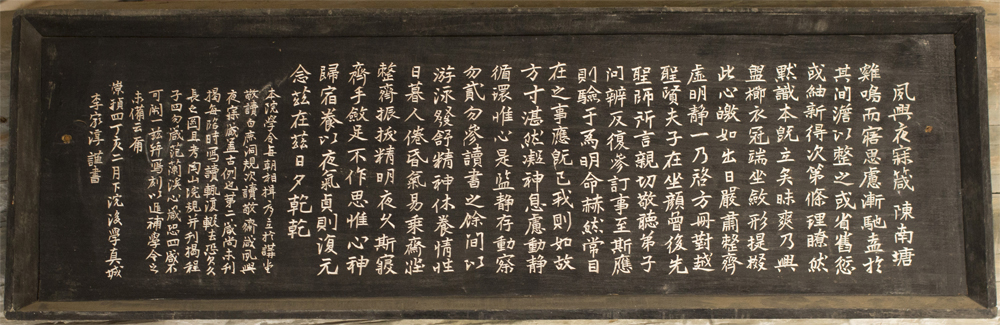 夙興夜寐箴 陳南塘
雞鳴而寤思慮漸馳盍於
其間澹以整之或省舊愆
或紬新得次第條理瞭然
默識本旣立矣昧爽乃興
盥櫛衣冠端坐斂形提掇
此心皦如出日嚴肅整齊
虛明靜一乃啓方冊對越
聖賢夫子在坐顔曾後先
聖師所言親切敬聽弟子
問辨反復參訂事至斯應
則驗于爲明命赫然常目
在之事應旣已我則如故
方寸湛然凝神息慮動靜
循環惟心是監靜存動察
勿貳勿參讀書之餘間以
游泳發舒精神休養情性
日暮人倦昏氣易乘齋莊
整齊振拔精明夜久斯寢
齊手斂足不作思惟心神
歸宿養以夜氣貞則復元
念玆在玆日夕乾乾
本院學令每朝相揖乃立於講堂
敬讀白鹿洞規次讀敬齋箴夙興
夜寐箴盖古例也第二箴尚未刊
揭每臨時寫讀輒復輟去恐非久
長之圖且考陶山院規幷刊揭程
子四勿箴范蘭溪心箴恐四箴不
可闕一玆幷寫刻以追補學令之
未備云有
崇禎四丁亥二月下浣後學眞城
李家淳謹書